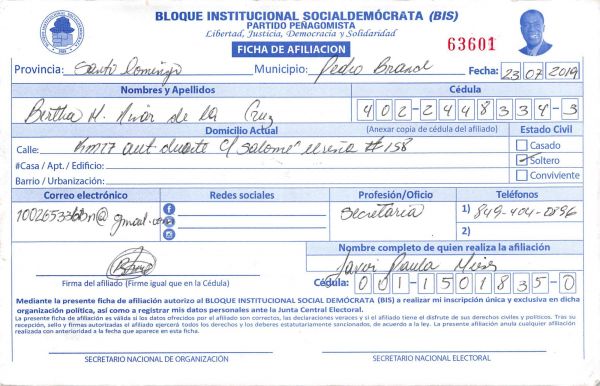 BLOQUE INSTITUCIONAL SOCIALDEMÓCRATA (BIS)
PARTIDO PEÑAGOMISTA
Libertad, Justicia, Democracia y Solidaridad
FICHA DE AFILIACION
63601
Provincia: Santo Domingo Municipio: Pedro Brand Fecha: 23 07 2019
Nombres y Apellidos Cédula
Bertha M. de la Cruz 402-2448334-3
Domicilio Actual (Anexar copia de cédula del afiliado) Estado Civil
Calle: Km17 aut. duarte C/ Salomé ureña #158
Casado
#Casa / Apt. / Edificio: Soltero
Barrio / Urbanización: Conviviente
Correo electrónico Redes sociales Profesión/Oficio Teléfonos
@gmail.com Secretaria 1) 849-404-0896
2)
Nombre completo de quien realiza la afiliación
Javier Paula
Firma del afiliado (Firme igual que en la Cédula) Cédula: 001-1501835-0
Mediante la presente ficha de afiliación autorizo al BLOQUE INSTITUCIONAL SOCIAL DEMÓCRATA (BIS) a realizar mi inscripción única y exclusiva en dicha
organización política, así como a registrar mis datos personales ante la Junta Central Electoral.
La presente ficha de afiliación es válida si los datos ofrecidos por el afiliado son correctos, las declaraciones veraces y si el afiliado tiene el disfrute de sus derechos civiles y políticos. Tras su
recepción, sello y firmas autorizadas el afiliado ejercerá todos los derechos y los deberes estatutariamente sancionados, de acuerdo a la ley. La presente afiliación anula cualquier afiliación
realizada con anterioridad a la fecha que aparece en esta ficha.
SECRETARIO NACIONAL DE ORGANIZACIÓN SECRETARIO NACIONAL ELECTORAL